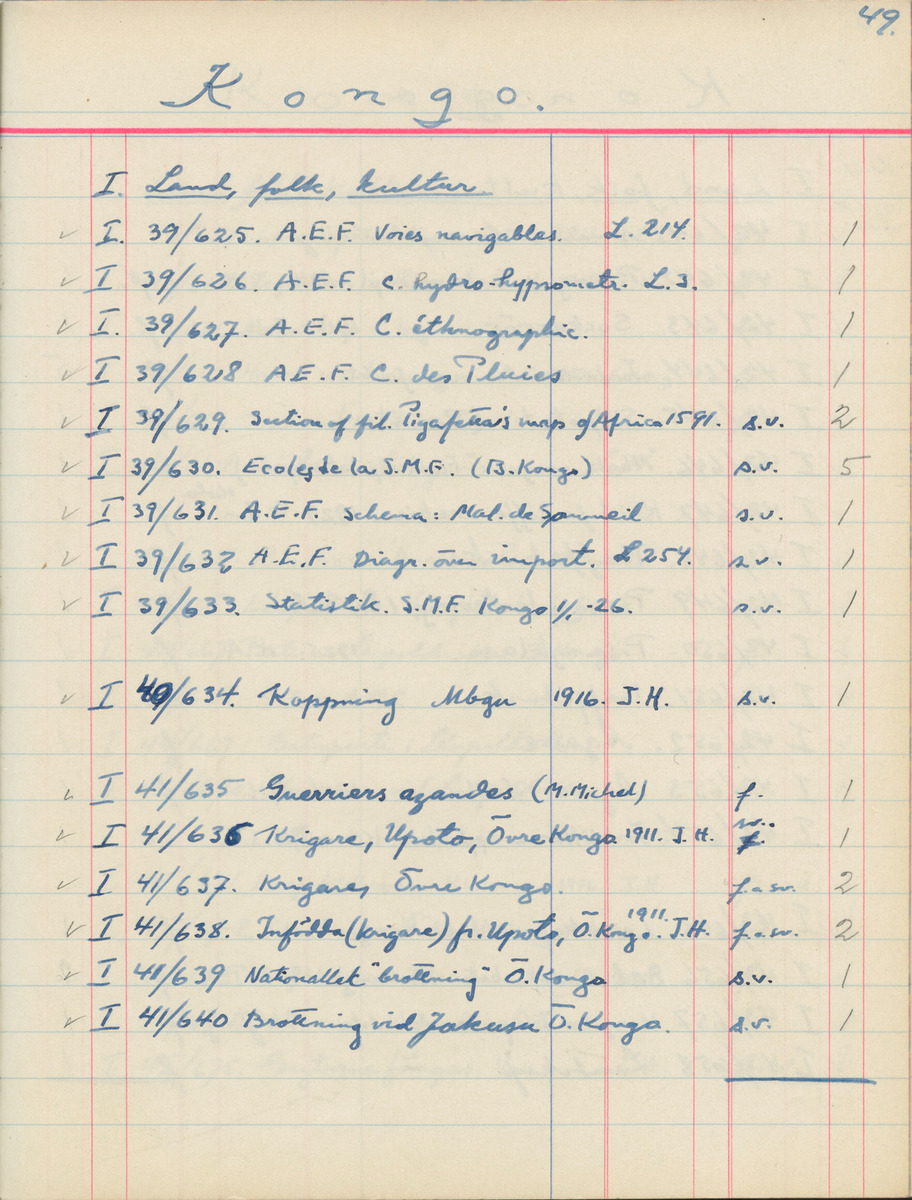 49.
Kongo.
I. Land, folk, kultur.
✓ I. 39/625. A.E.F. Voies navigables. L. 214. 1
✓ I 39/626. A.E.F. C. hydro-hypsometr. L. 3. 1
✓ I. 39/627. A.E.F. C. éthnographic. 1
✓ I 39/628 A.E.F. C. des Pluies 1
✓ I 39/629. Section of fil. Pigafetta's map of Africa 1591. s.v. 2
✓ I 39/630. Ecoles de la S.M.F. (B. Kongo) s.v. 5
✓ I 39/631. A.E.F. Schema: Mal. de Sommeil s.v. 1
✓ I 39/632 A.E.F. Diagr. över import. L 254. s.v. 1
✓ I 39/633. Statistik. S.M.F. Kongo 1/1 -26. s.v. 1
✓ I 40/634. Koppning 1916. J.H. s.v. 1
✓ I 41/635 Guerriers azandes (M. Michel) f. 1
✓ I 41/636 Krigare, Upoto, Övre Kongo 1911. J.H. sv. 1
✓ I 41/637. Krigare, Övre Kongo. f. a sv. 2
✓ I 41/638. Infödda (krigare) fr. Upoto, Ö. Kongo. 1911. J.H. f. a. sv. 2
✓ I 41/639 Nationallek "brottning" Ö. Kongo s.v. 1
✓ I 41/640 Brottning vid Jakusu Ö. Kongo. s.v. 1